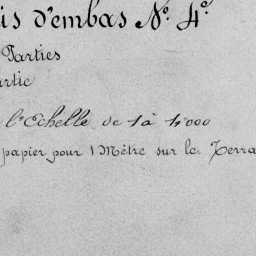 is d'embas N.º 4.º
Parties
artie
l'Echelle de 1 à 1'000
papier pour 1 Mètre sur le Terra